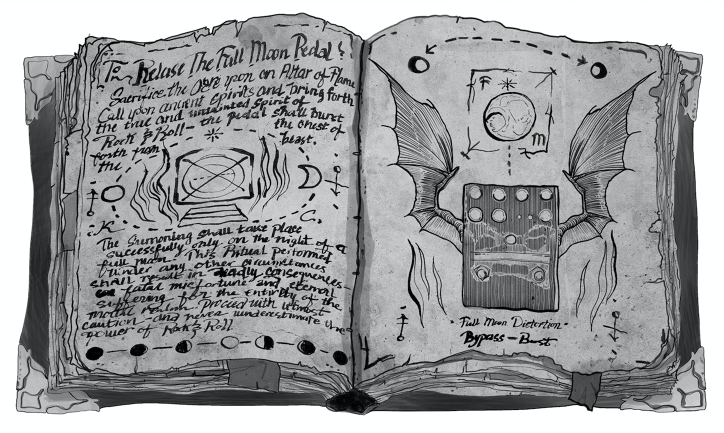 To Relase The Full Moon Pedal
Sacrifice the Ogre upon an Altar of Flame
Call upon ancient spirits and bring forth
the true and untainted spirit of
Rock & Roll - the pedal shall burst
forth from the chest of
the beast.
K C.
The Sumoning shall take place
successfully only on the night of a
full moon. This Ritual performed
under any other circumstances
shall result in deadly consequences -
fatal misfortune and eternal
suffering for the entirety of the
mortal realm. Proceed with utmost
caution - and never underestimate the
power of Rock & Roll
F
m
Full Moon Distortion
Bypass - Burst